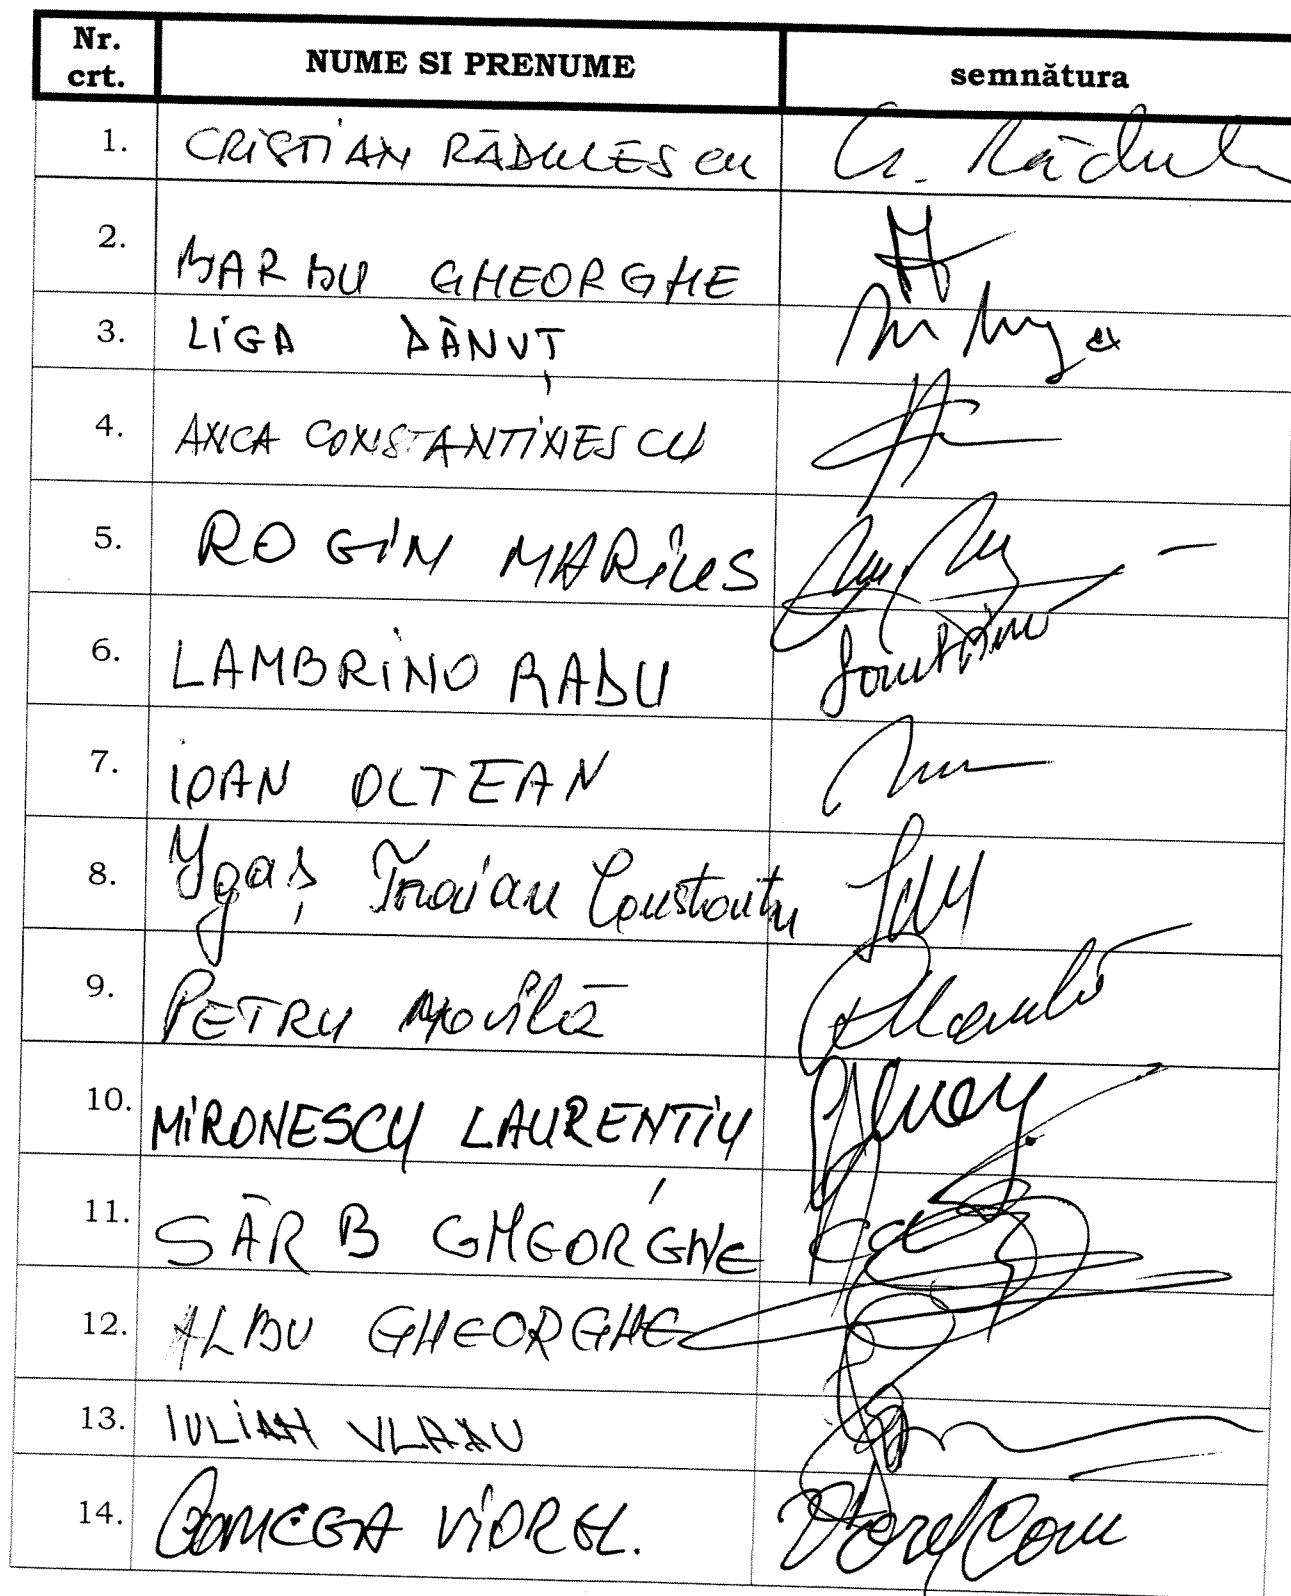 Nr. crt. NUME SI PRENUME semnătura
1. CRISTIAN RĂDULESCU
2. BARBU GHEORGHE
3. LIGA DĂNUȚ
4. ANCA CONSTANTINESCU
5. ROGIN MARIUS
6. LAMBRINO RADU
7. IOAN OLTEAN
8. Ygaș Traian Constantin
9. PETRU Movilă
10. MIRONESCU LAURENTIU
11. SÂRB GHEORGHE
12. ALBU GHEORGHE
13. IULIAN VLADU
14. VIOREL.